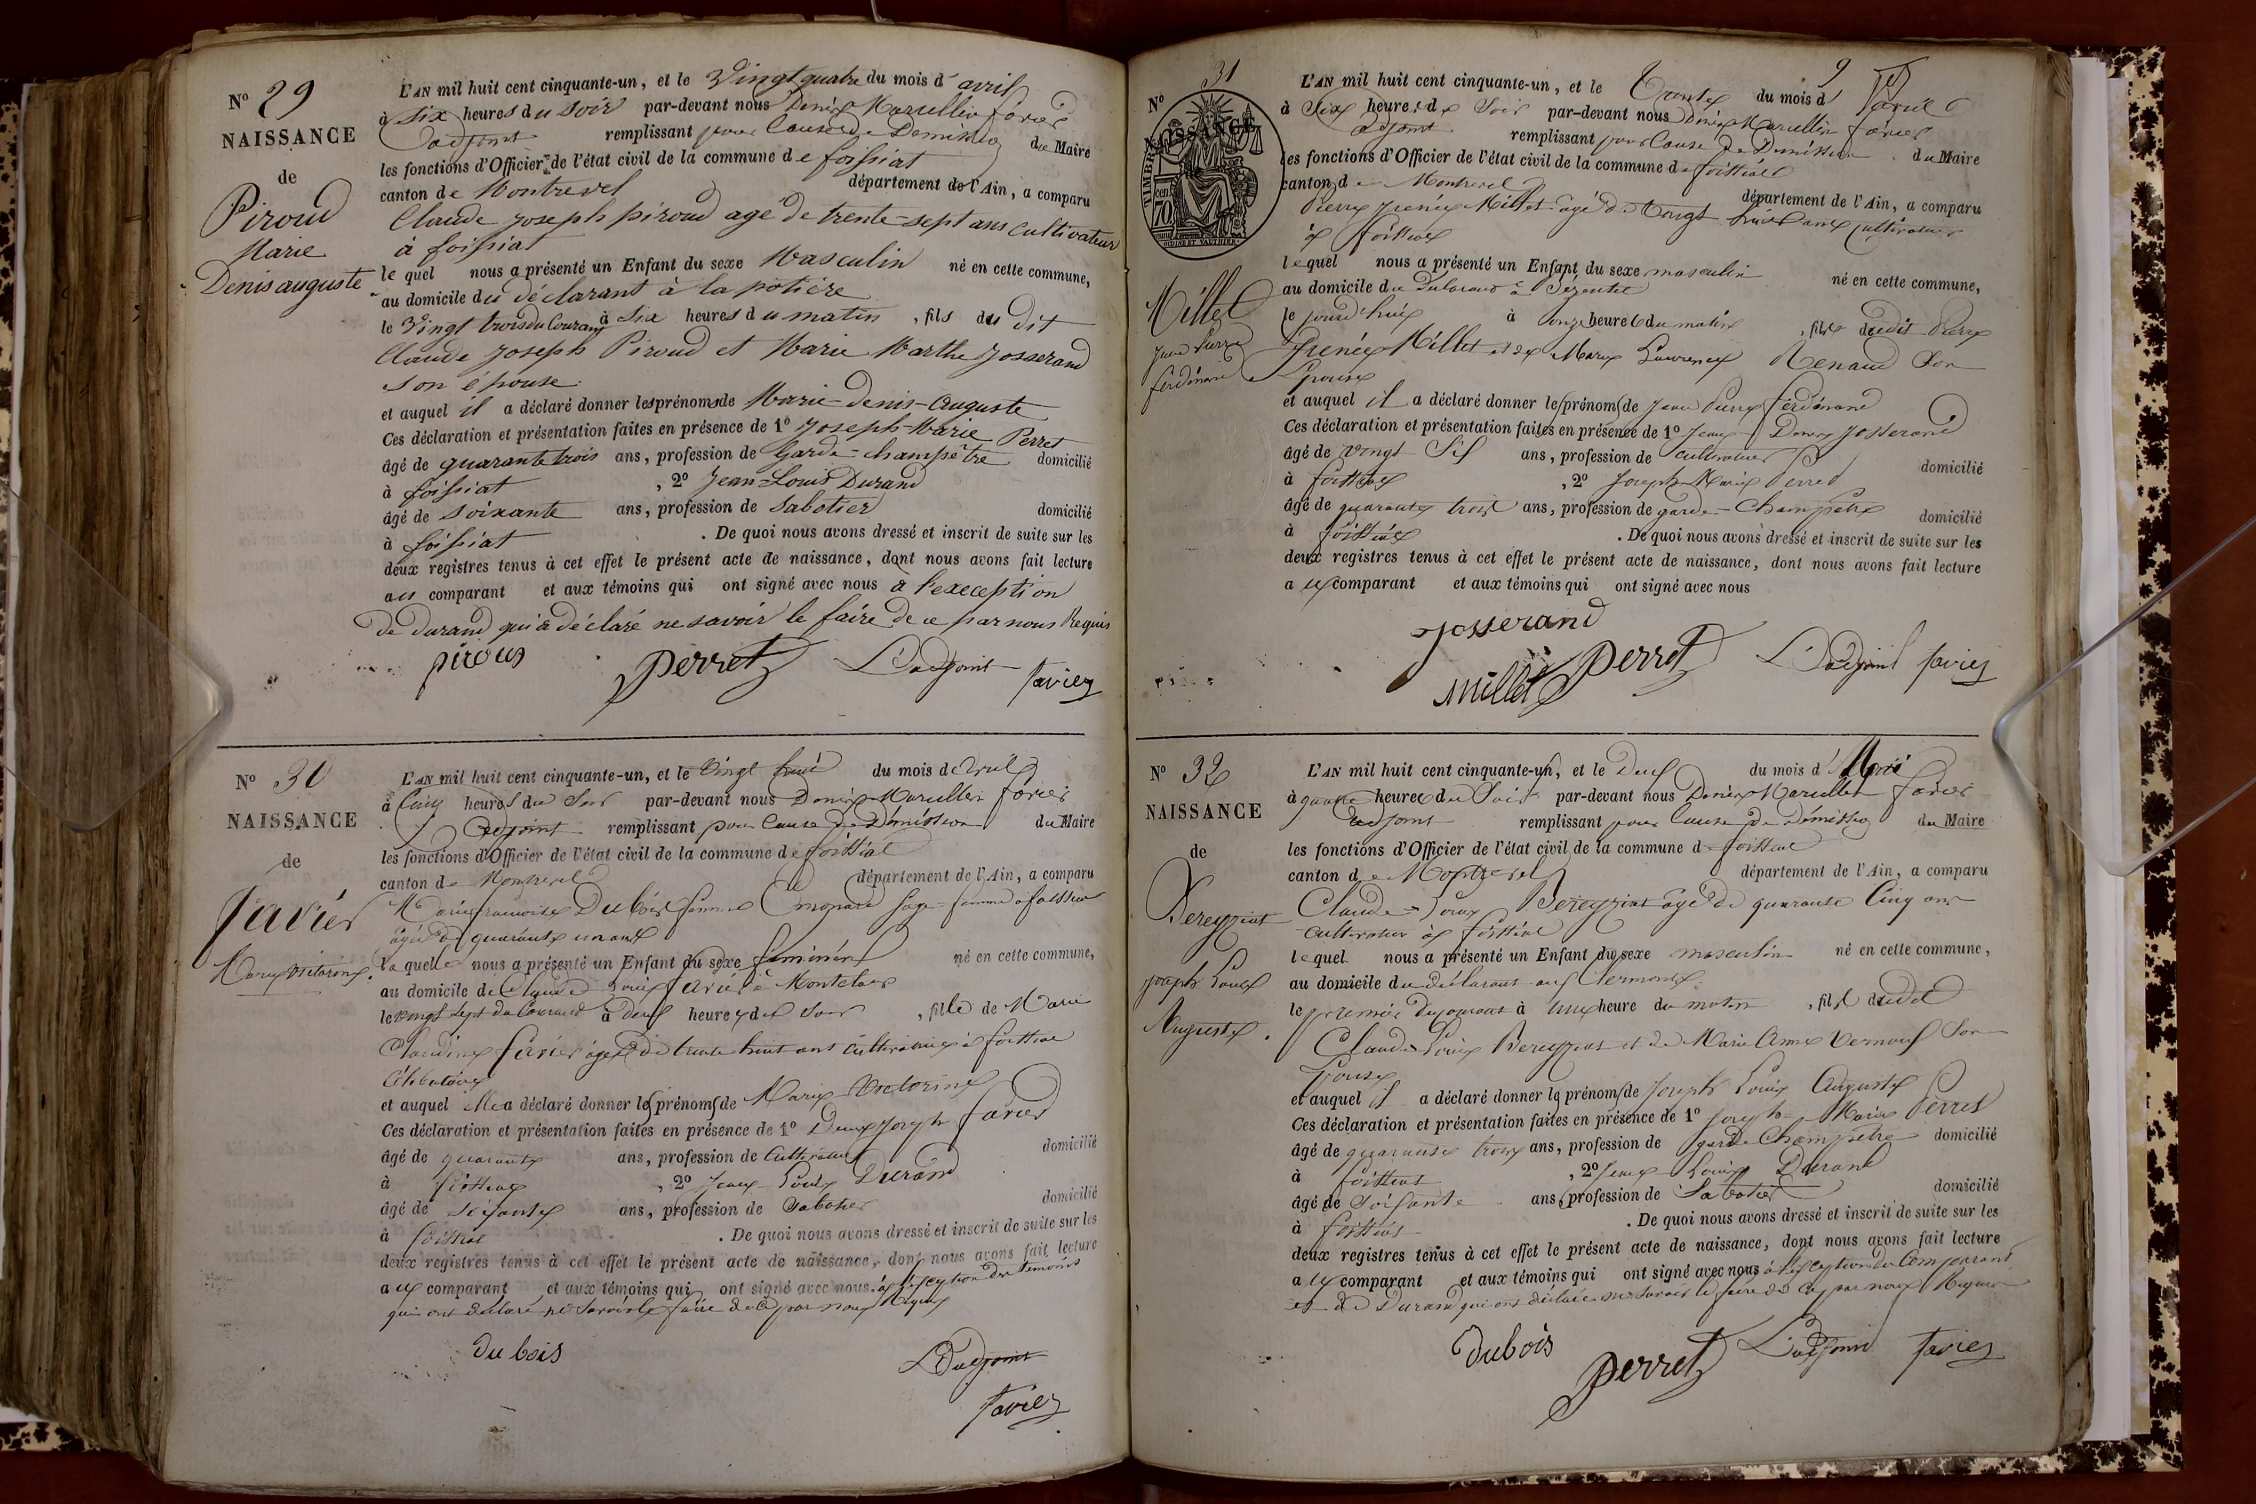 N° 29
NAISSANCE
de
Piroud
Marie
Denis auguste
L'AN mil huit cent cinquante-un, et le Vingt quatre du mois d'avril
à six heures du soir par-devant nous Denis Marcellin favier
adjoint remplissant pour Cause de Demission du Maire
les fonctions d'Officier de l'état civil de la commune de foissiat
canton de Montrevel département de l'Ain, a comparu
Claude joseph piroud agé de trente-sept ans cultivateur
à foissiat
le quel nous a présenté un Enfant du sexe Masculin né en cette commune,
au domicile du déclarant à la potière
le Vingt trois du Courant à six heures du matin, fils du dit
Claude joseph Piroud et Marie Marthe josserand
son épouse
et auquel il a déclaré donner les prénoms de Marie-denis-auguste
Ces déclaration et présentation faites en présence de 1° joseph-Marie Perret
âgé de quarante trois ans, profession de garde-champêtre domicilié
à foissiat, 2° jean-Louis Durand
âgé de soixante ans, profession de sabotier domicilié
à foissiat. De quoi nous avons dressé et inscrit de suite sur les
deux registres tenus à cet effet le présent acte de naissance, dont nous avons fait lecture
au comparant et aux témoins qui ont signé avec nous à l'exeception
de durand qui a déclaré ne savoir le faire de ce par nous Requis
piroud
perret L'adjoint favier
N° 30
NAISSANCE
de
favier
Marie victorine
L'AN mil huit cent cinquante-un, et le Vingt huit du mois d'avril
à Cinq heures du Soir par-devant nous Denis Marcellin favier
adjoint remplissant pour Cause de Démission du Maire
les fonctions d'Officier de l'état civil de la commune de foissiat
canton de Montrevel département de l'Ain, a comparu
Marie françoise Dubois femme sage-femme à foissiat
agée de quarante un ans
la quelle nous a présenté un Enfant du sexe féminin né en cette commune,
au domicile de Claude Louis favier à Montelar
le vingt sept du Courant à deux heures du Soir, fille de Marie
Claudine favier agée de trente huit ans cultivatrice à foissiat
Célibataire
et auquel elle a déclaré donner les prénoms de Marie Victorine
Ces déclaration et présentation faites en présence de 1° Denis joseph favier
âgé de quarante ans, profession de Cultivateur domicilié
à foissiat, 2° jean Louis Durand
âgé de soixante ans, profession de Sabotier domicilié
à foissiat. De quoi nous avons dressé et inscrit de suite sur les
deux registres tenus à cet effet le présent acte de naissance, dont nous avons fait lecture
aux comparant et aux témoins qui ont signé avec nous à l'exception des témoins
qui ont déclaré ne savoir le faire de ce par nous Requis
dubois
L'adjoint
favier
9
N° 31
NAISSANCE
TIMBRE
70
Millet
jean pierre
ferdinand
L'AN mil huit cent cinquante-un, et le Trente du mois d'avril
à Six heures du Soir par-devant nous Denis Marcellin favier
adjoint remplissant pour Cause de Démission du Maire
les fonctions d'Officier de l'état civil de la commune de foissiat
canton de Montrevel département de l'Ain, a comparu
Pierre jrenée Millet agé de vingt huit ans cultivateur
à foissiat
lequel nous a présenté un Enfant du sexe masculin né en cette commune,
au domicile du Déclarant à
le jourd'hui à onze heures du matin, fils dudit Pierre
jrenée Millet et de Marie Laurence Renaud Son
Epouse
et auquel il a déclaré donner les prénoms de jean Pierre ferdinand
Ces déclaration et présentation faites en présence de 1° jean Denis josserand
âgé de vingt Six ans, profession de cultivateur domicilié
à foissiat, 2° joseph Marie Perret
âgé de quarante trois ans, profession de garde-Champêtre domicilié
à foissiat. De quoi nous avons dressé et inscrit de suite sur les
deux registres tenus à cet effet le présent acte de naissance, dont nous avons fait lecture
aux comparant et aux témoins qui ont signé avec nous
josserand
millet perret L'adjoint favier
N° 32
NAISSANCE
de
Bereyziat
joseph Louis
Auguste.
L'AN mil huit cent cinquante-un, et le Deux du mois d Mai
à quatre heures du Soir par-devant nous Denis Marcellin favier
adjoint remplissant pour Cause de démission du Maire
les fonctions d'Officier de l'état civil de la commune de foissiat
canton de Montrevel département de l'Ain, a comparu
Claude-Louis Bereyziat agé de quarante Cinq ans
cultivateur à foissiat
lequel nous a présenté un Enfant du sexe masculin né en cette commune,
au domicile du déclarant aux
le premier du courant à une heure du matin, fils dudit
Claude Louis Bereyziat et de Marie Anne Son
Epouse
et auquel il a déclaré donner les prénoms de joseph Louis Auguste
Ces déclaration et présentation faites en présence de 1° joseph-Marie Perret
âgé de quarante trois ans, profession de garde Champêtre domicilié
à foissiat, 2° jean Louis Durand
âgé de Soixante ans, profession de Sabotier domicilié
à foissiat. De quoi nous avons dressé et inscrit de suite sur les
deux registres tenus à cet effet le présent acte de naissance, dont nous avons fait lecture
aux comparant et aux témoins qui ont signé avec nous à l'exception du Comparant
et de Durand qui ont déclaré ne savoir le faire de ce par nous Requis
dubois
perret L'adjoint favier